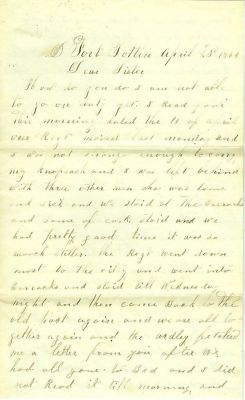 Fort Totten April
Dear Sister
How do you do I am not able
to go on duty yet. I Read your
this morning dated the 11 of april
our Regt moved last monday and
I was not strong enough to carry
my Knapsack and I was left behind
with three other men who was lame
and sick and we staid at the Barracks
and some of Co K staid and we
had pretty good time it was so
much stiller. the Regt went down
most to the city and went into
Barracks and staid till Wednesday
night and then came Back to the
old post again and we are all to
gether again and the ordley fetched
me a letter from you after we
had all gone to Bed and I did
not Read it till morning and